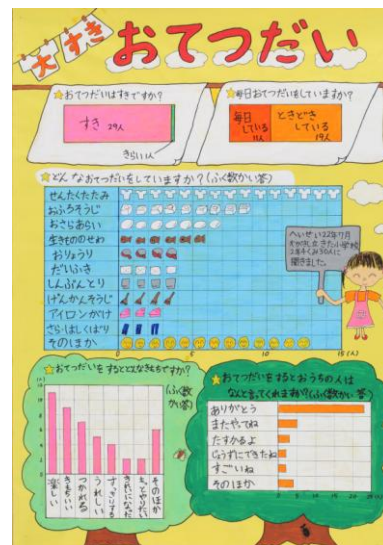 大すき おてつだい
☆おてつだいはすきですか?
すき 29人
きらい1人
☆毎日おてつだいをしていますか?
毎日
している
11人
ときどき
している
19人
☆どんなおてつだいをしていますか?(ふく数かい答)
せんたくたたみ
おふろそうじ
おさらあらい
生きもののせわ
おりょうり
だいふき
しんぶんとり
げんかんそうじ
アイロンがけ
さら・はしくばり
そのほか
0 5 10 15(人)
へいせい22年7月
聞きました。
☆おてつだいをするとどんなきもちですか?
(ふく数かい答)
(人)
12
10
8
6
4
2
0
楽しい
きもちいい
つかれる
うれしい
すっきりする
きれいになった
もっとやりたい
そのほか
☆おてつだいをするとおうちの人は
なんと言ってくれますか?(ふく数かい答)
ありがとう
またやってね
たすかるよ
じょうずにできたね
すごいね
そのほか
0 5 10 15 20 25(人)